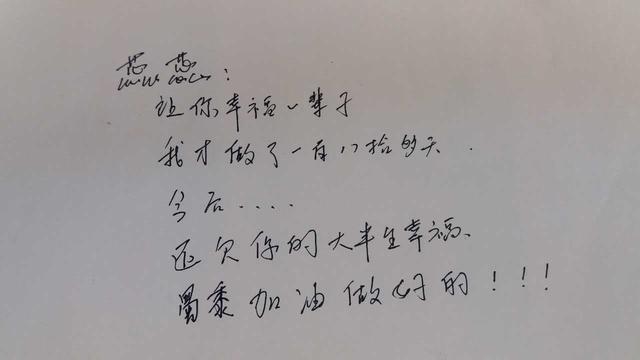 蕊蕊：
让你幸福一辈子
我才做了一百八拾多天.
今后....
还欠你的大半生幸福、
黍加油做好的！！！